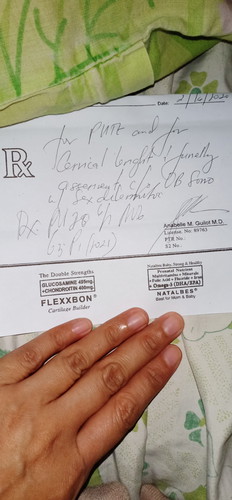 Date: 2/16/202
Rx
for PUTZ and for
Cervical lenght & funelly
assessment c/o OB Sono
w/ sex determination
Dx: P1 20
G3P1 (1021)
Anabelle M. Guillot M.D.
License No. 89763
PTR No.:
S2 No.:
The Double Strengths
GLUCOSAMINE 495mg
+CHONDROITIN 400mg
FLEXXBON®
Cartilage Builder
Nourishes Baby, Strong & Healthy
Prenatal Nutrient
Multivitamins + Minerals
+ Folic Acid + Fluoride + Iron
+ Omega-3 (DHA/EPA)
NATALBES®
Best for Mum & Baby